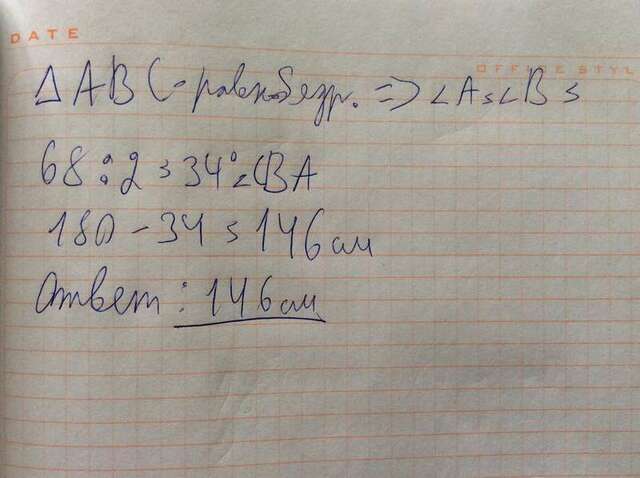 DATE
OFFICE STYL
ΔABC - равнобедр. => ∠A=∠B =
68:2=34°∠CBA
180-34=146 см
Ответ: 146 см